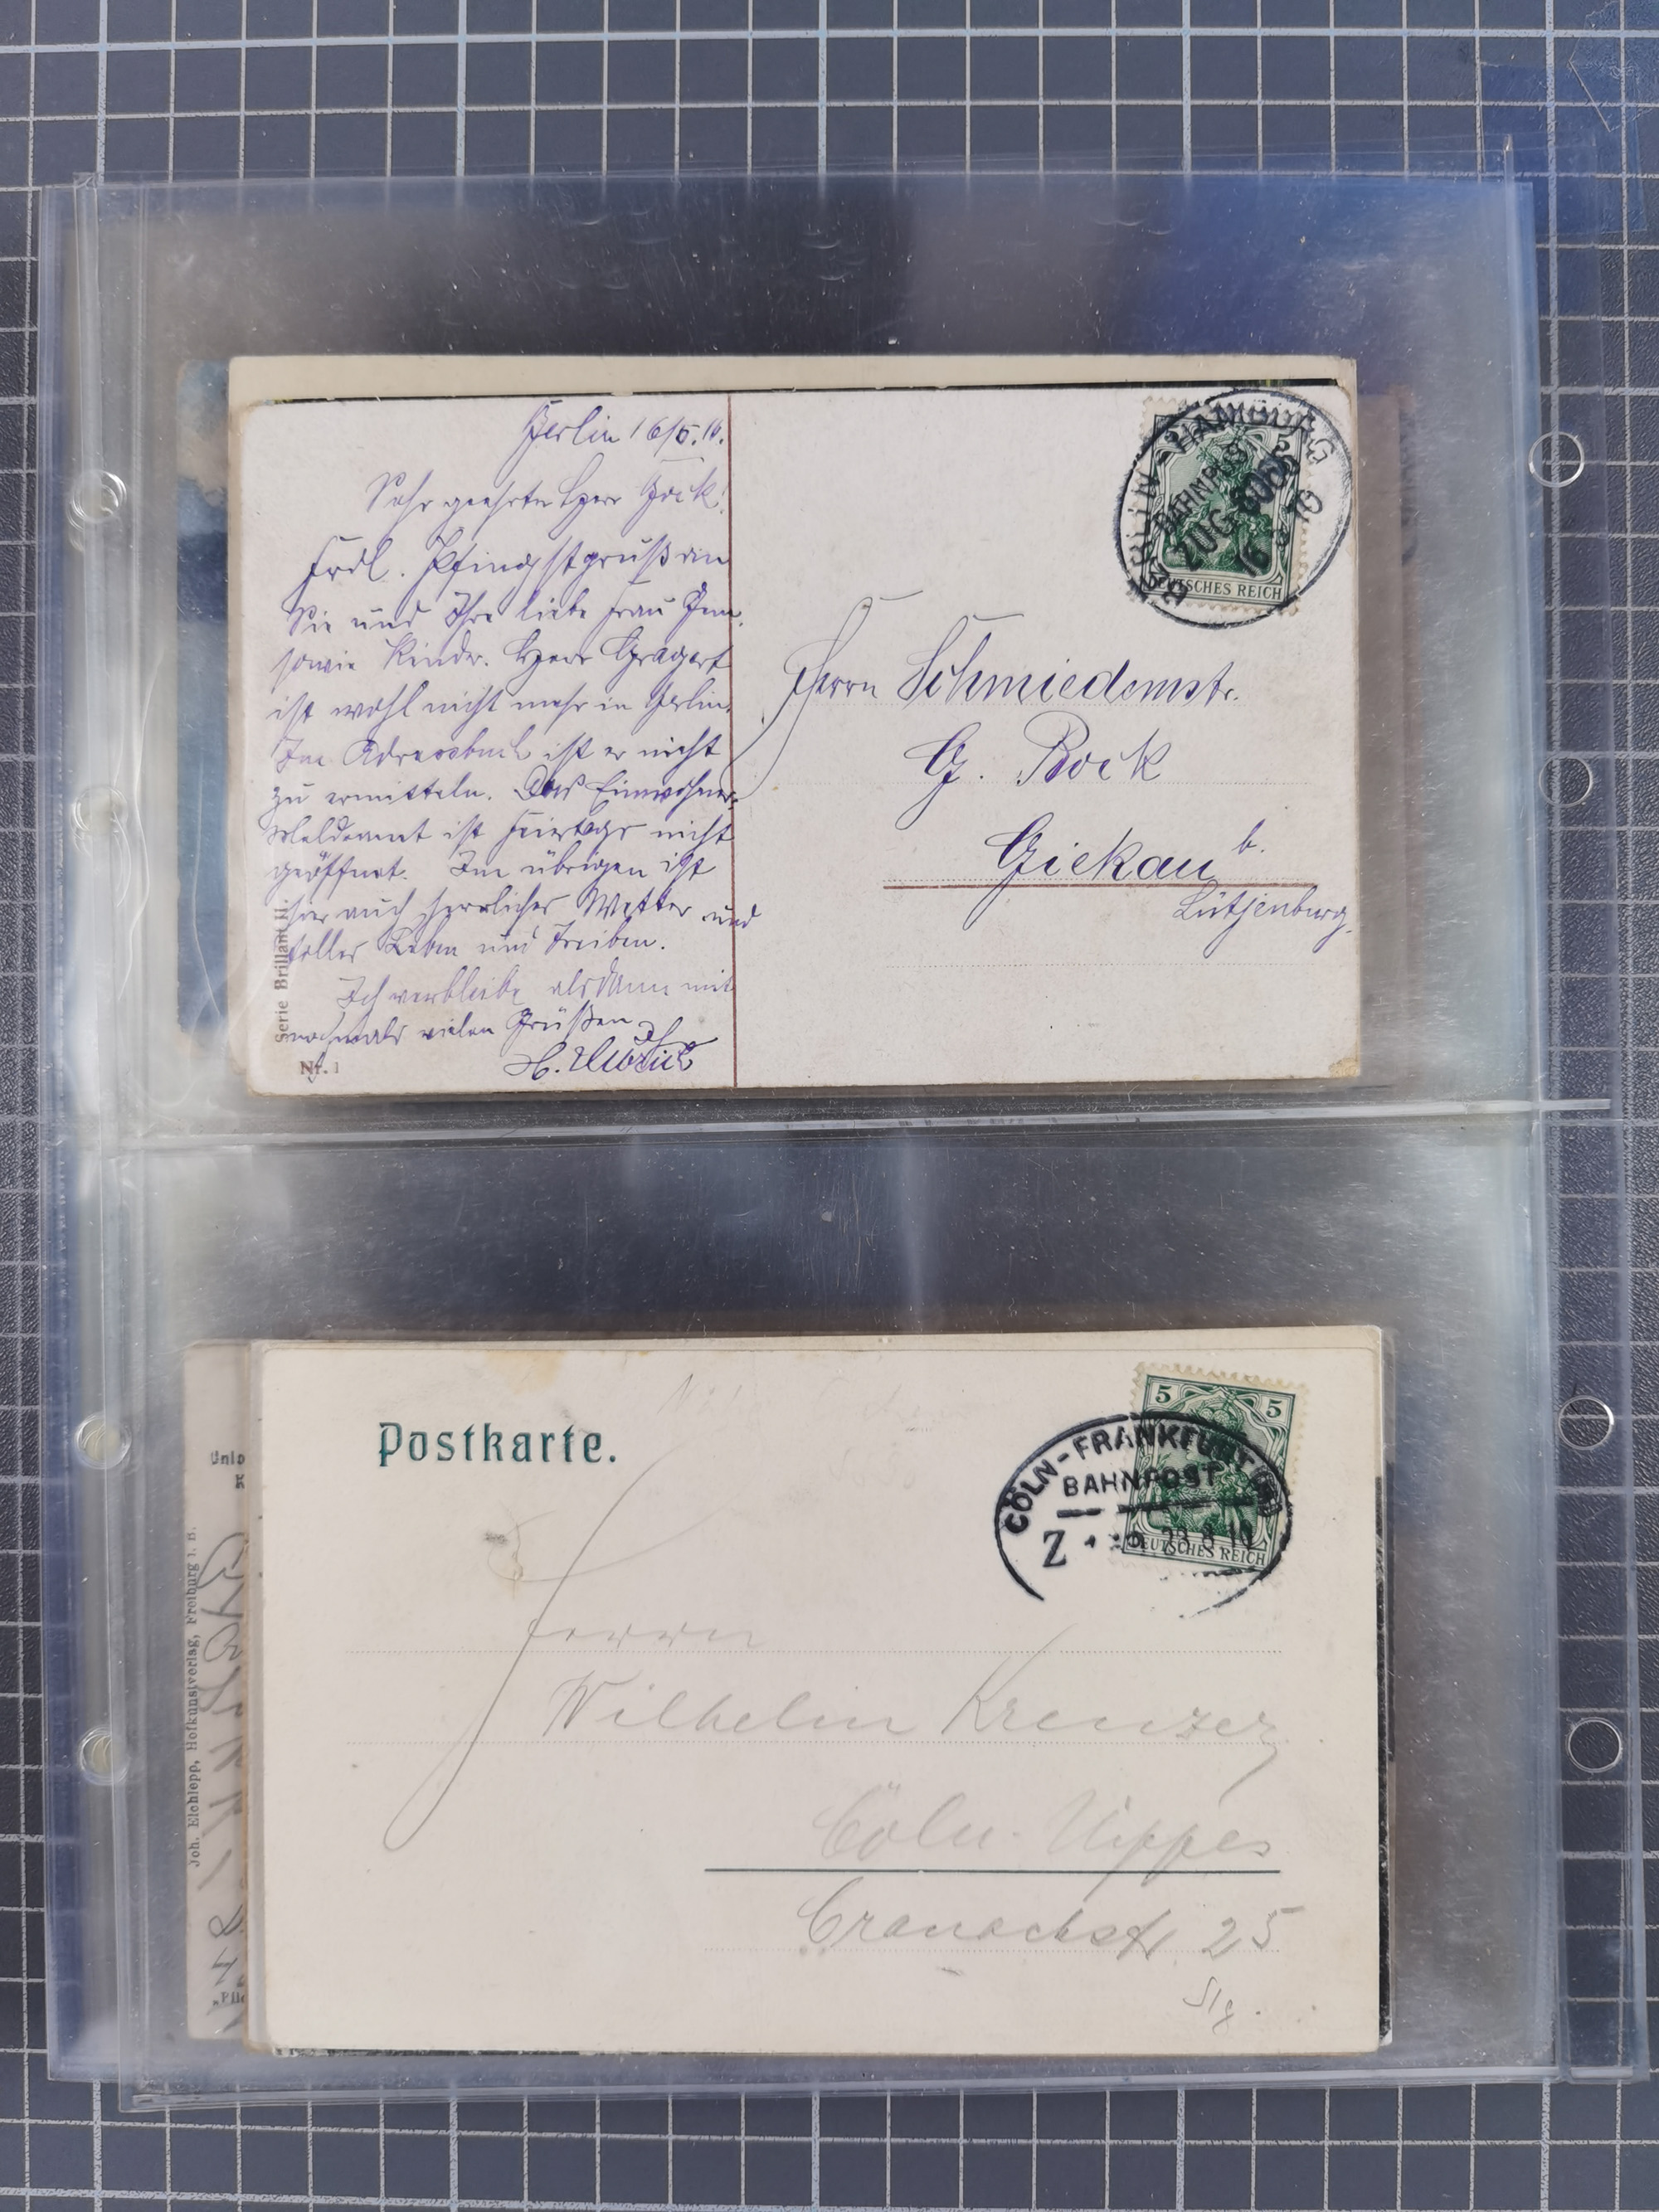 Berlin 16/5.10.
Sehr geehrter Herr Bock!
Frdl. Pfingstgruß an
Sie und Ihre liebe Frau Gem.
sowie Kinder. Herr
ist wohl nicht mehr in Berlin.
Im Adressbuch ist er nicht
zu ermitteln. Das Einwohner-
Meldeamt ist Feiertags nicht
geöffnet. Im übrigen ist
hier auch herrliches Wetter und
tolles Leben und Treiben.
Ich verbleibe alsdann mit
nochmals vielen Grüßen
Ihr
H.
Serie Brillant II.
Nr. 1
BERLIN HAMBURG
BAHNPOST
ZUG
16 5 10
DEUTSCHES REICH
Herrn Schmiedemstr.
G. Bock
Giekau b.
Lütjenburg.
Postkarte.
5 5
CÖLN-FRANKFURT
BAHNPOST
Z 23 8 10
DEUTSCHES REICH
Herrn
Wilhelm Kreuzer
Cöln-Nippes
Cranachstr 25
Slg.
Joh. Elchlepp, Hofkunstverlag, Freiburg i. B.